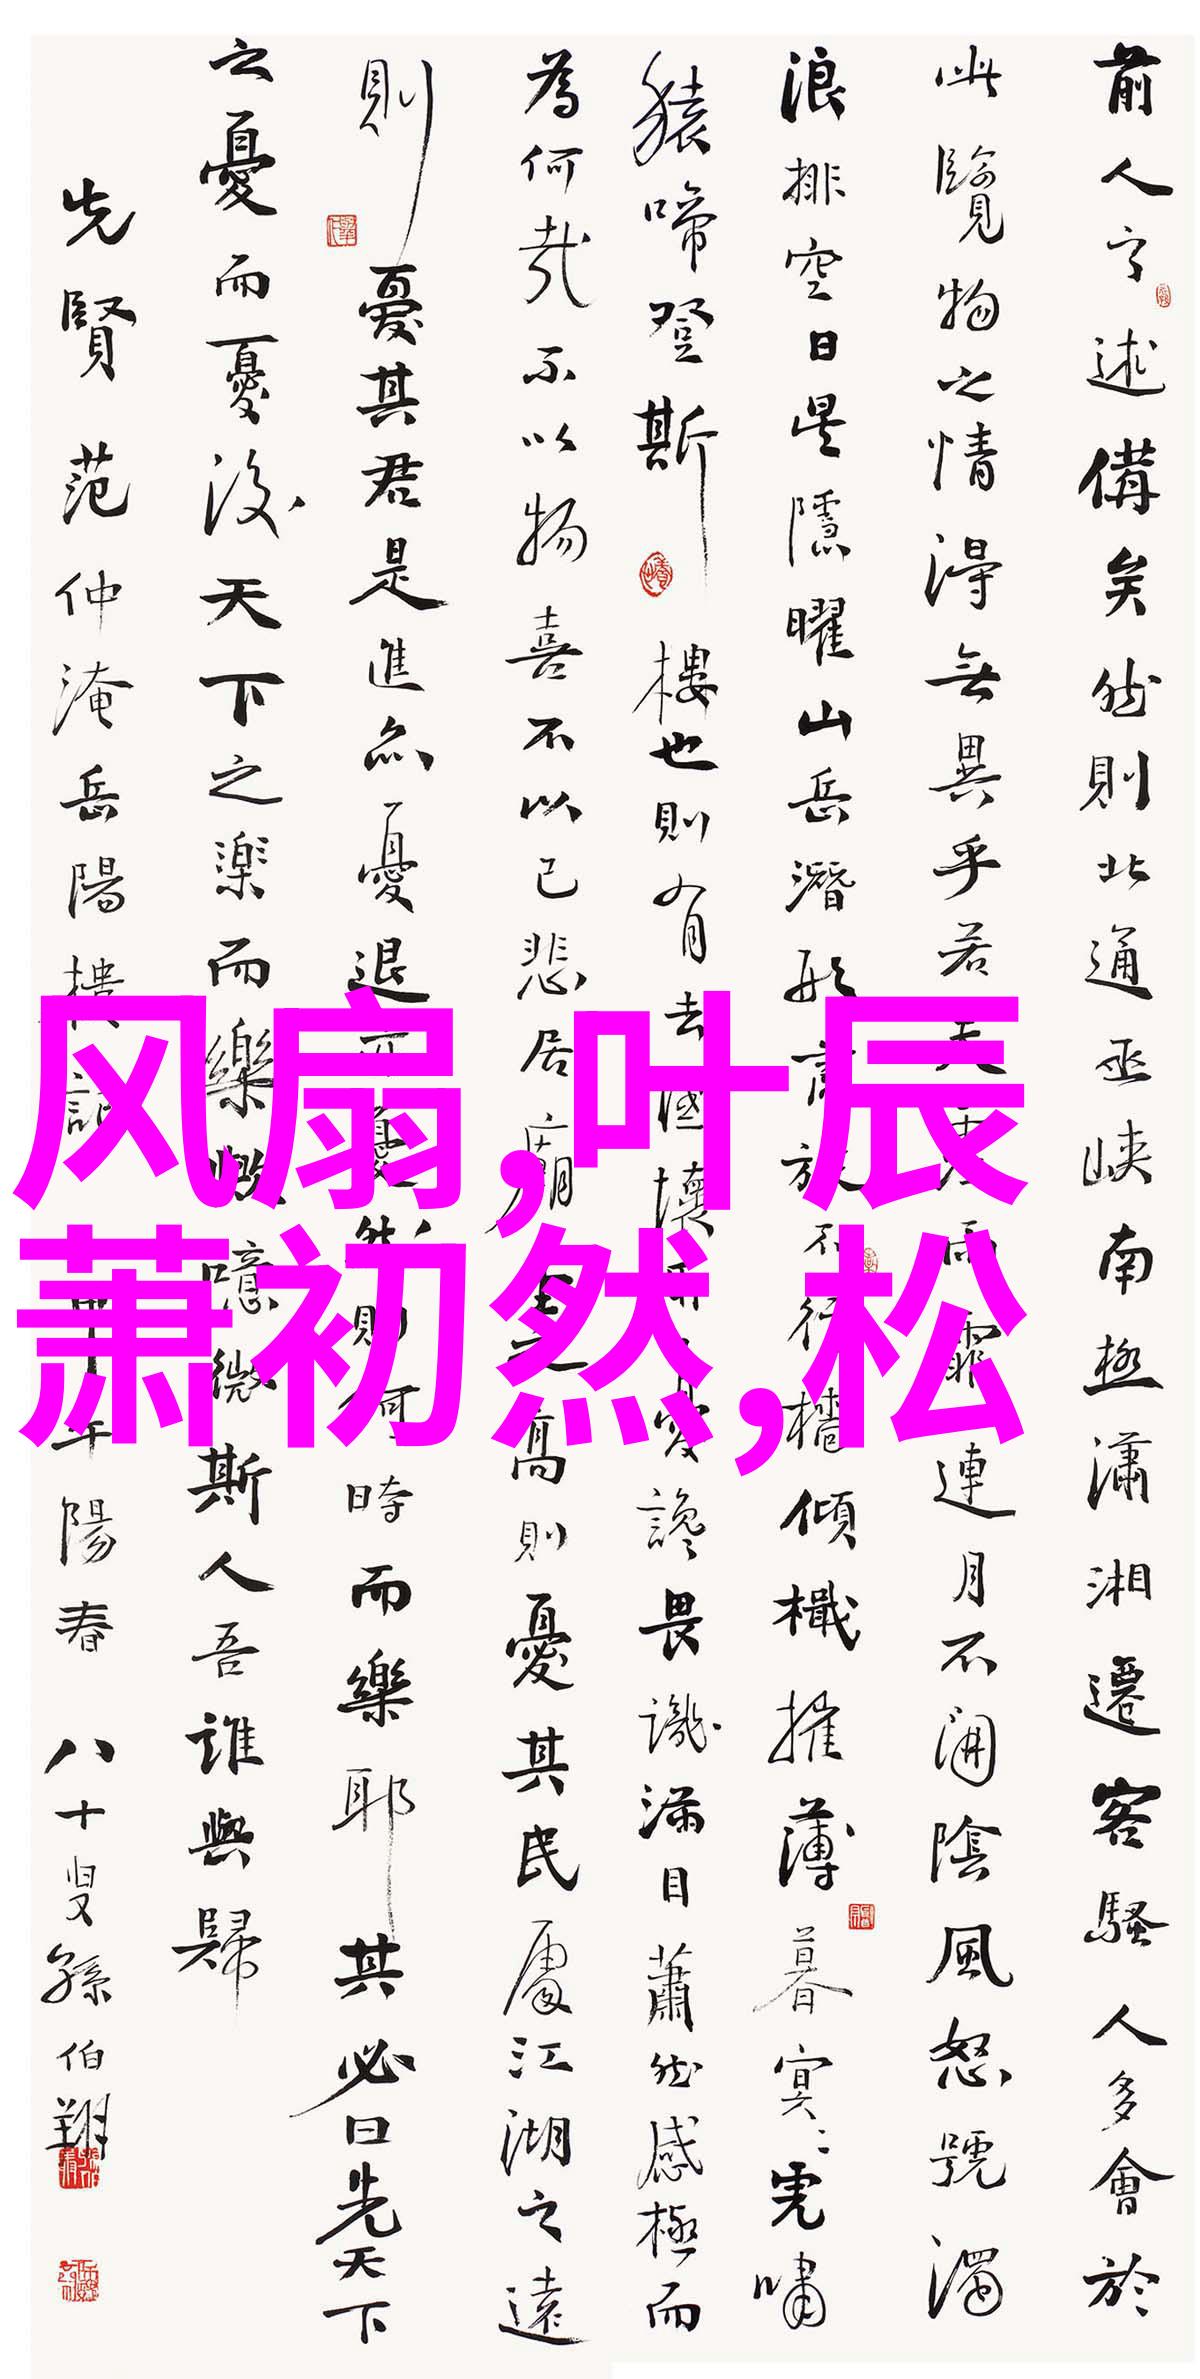 前人字述備矣然則北通巫峽南極瀟湘遷客騷人多會於
此覽物之情得無異乎若夫霪雨霏霏連月不開陰風怒號濁
浪排空日星隱曜山岳潛形商旅不行檣傾檝摧薄暮冥冥虎嘯
猿啼登斯樓也則有去國懷鄉憂讒畏譏滿目蕭然感極而
為何哉不以物喜不以己悲居廟堂之高則憂其民處江湖之遠
則憂其君是進亦憂退亦憂然則何時而樂耶其必曰先天下
之憂而憂後天下之樂而樂歟噫微斯人吾誰與歸
先賢范仲淹岳陽樓記 年陽春 八十叟孫伯翔
风扇,叶辰
萧初然,松